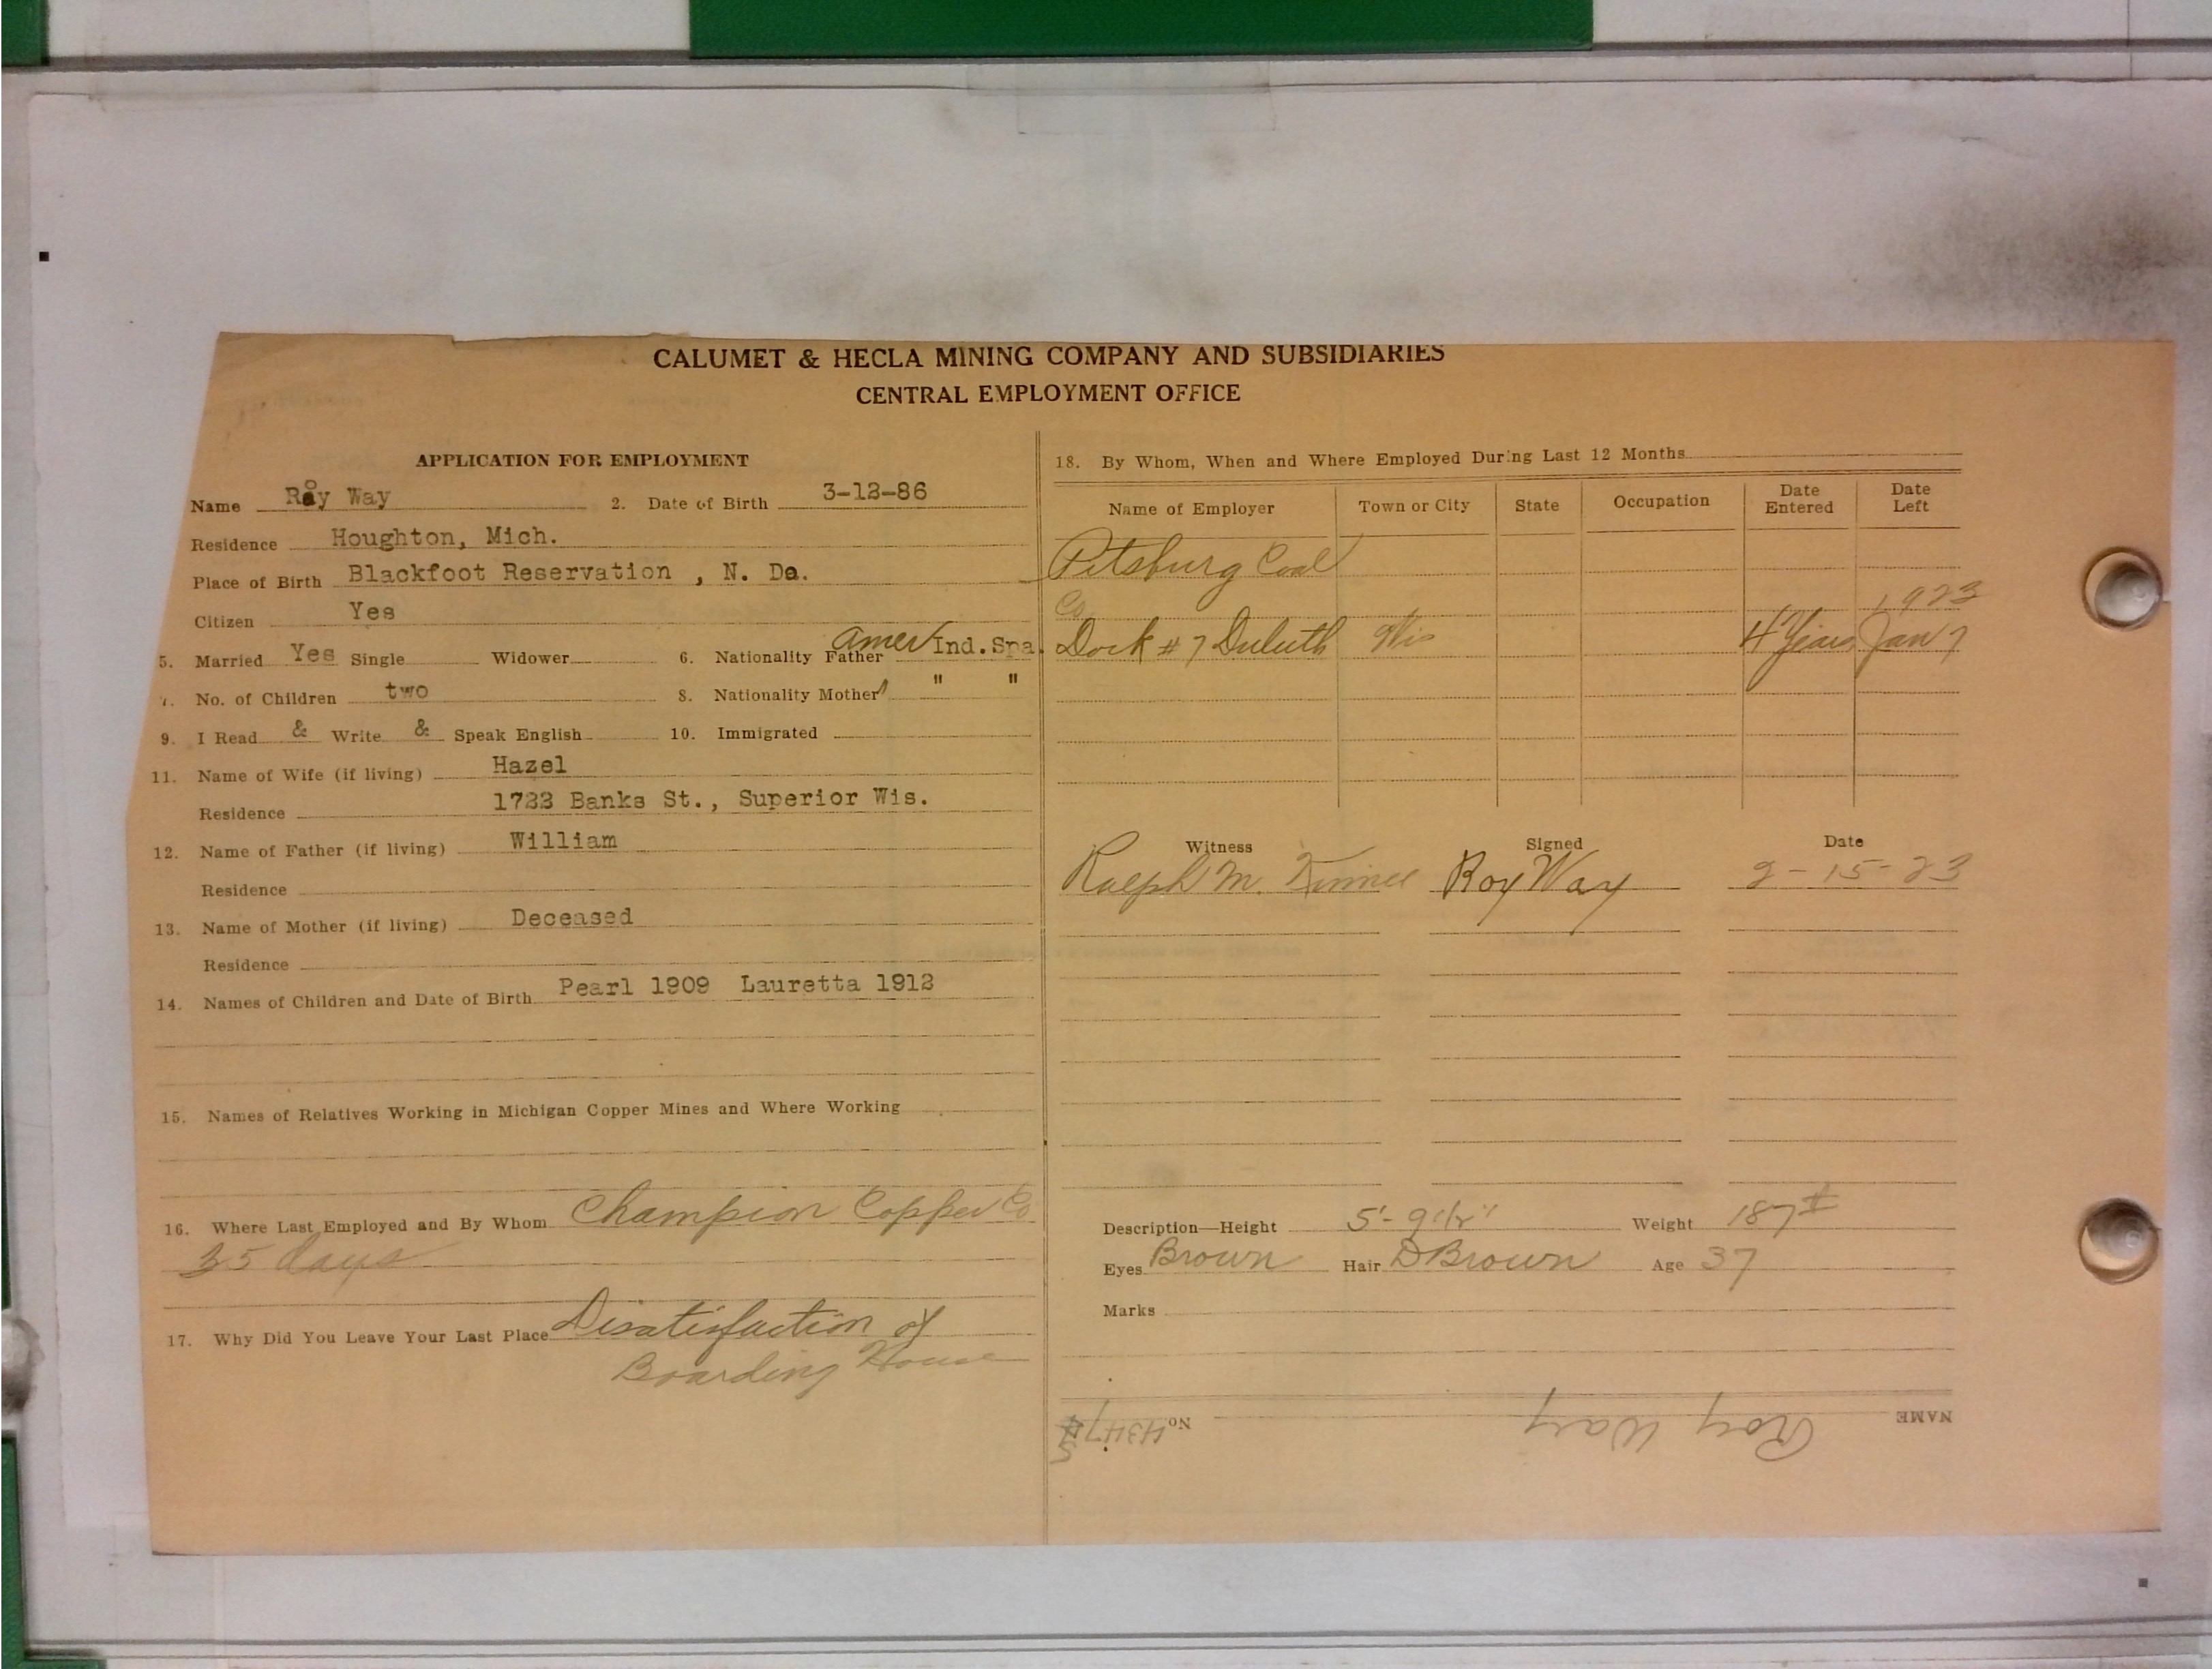 CALUMET & HECLA MINING COMPANY AND SUBSIDIARIES
CENTRAL EMPLOYMENT OFFICE
APPLICATION FOR EMPLOYMENT
Name Roy Way 2. Date of Birth 3-12-86
Residence Houghton, Mich.
Place of Birth Blackfoot Reservation , N. Da.
Citizen Yes
5. Married Yes Single Widower 6. Nationality Father Amer Ind. Spa.
7. No. of Children two 8. Nationality Mother " "
9. I Read & Write & Speak English 10. Immigrated
11. Name of Wife (if living) Hazel
Residence 1722 Banks St., Superior Wis.
12. Name of Father (if living) William
Residence
13. Name of Mother (if living) Deceased
Residence
14. Names of Children and Date of Birth Pearl 1909 Lauretta 1912
15. Names of Relatives Working in Michigan Copper Mines and Where Working
16. Where Last Employed and By Whom Champion Copper Co
35 days
17. Why Did You Leave Your Last Place Disatisfaction of
Boarding House
18. By Whom, When and Where Employed During Last 12 Months
Name of Employer Town or City State Occupation Date Entered Date Left
Pitsburg Coal
Co 1923
Dock #7 Duluth Wis 4 Years Jan 7
Witness Signed Date
Ralph M. Roy Way 2-15-23
Description—Height 5'-9 1/2" Weight 187#
Eyes Brown Hair D Brown Age 37
Marks
NAME Roy Way No. 4347